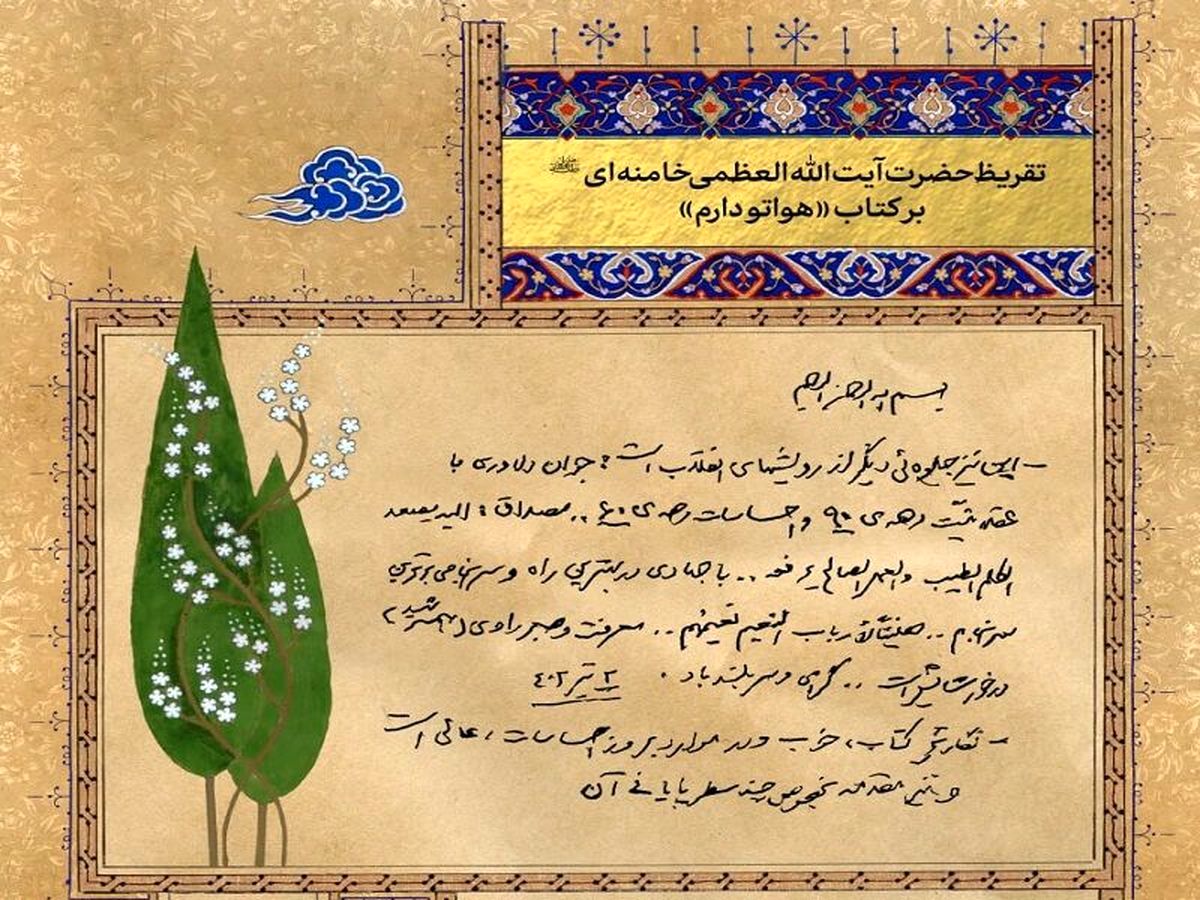 تقریظ حضرت آیت‌الله العظمی خامنه‌ای
بر کتاب «هواتو دارم»
بسم الله الرحمن الرحیم
- این نیز جلوه‌ئی دیگر از رویشهای انقلاب است: جوان دلاوری با
عقلانیّت دهه‌ی ۹۰ و احساسات دهه‌ی ۶۰ .. مصداق: الیه یصعد
الکلم الطیب و العمل الصالح یرفعه .. با جهادی در بهترین راه و سرانجامی برترین
سرانجام .. هنیئاً لأرباب النعیم نعیمهم .. معرفت و صبر راوی (همسر شهید)
در خور ستایش است .. گرامی و سربلند باد . ۲ تیر ۴۰۲
- نگارش کتاب، خوب و در موارد بروز احساسات، عالی است
و نیز مقدمه بخصوص چند سطر پایانی آن